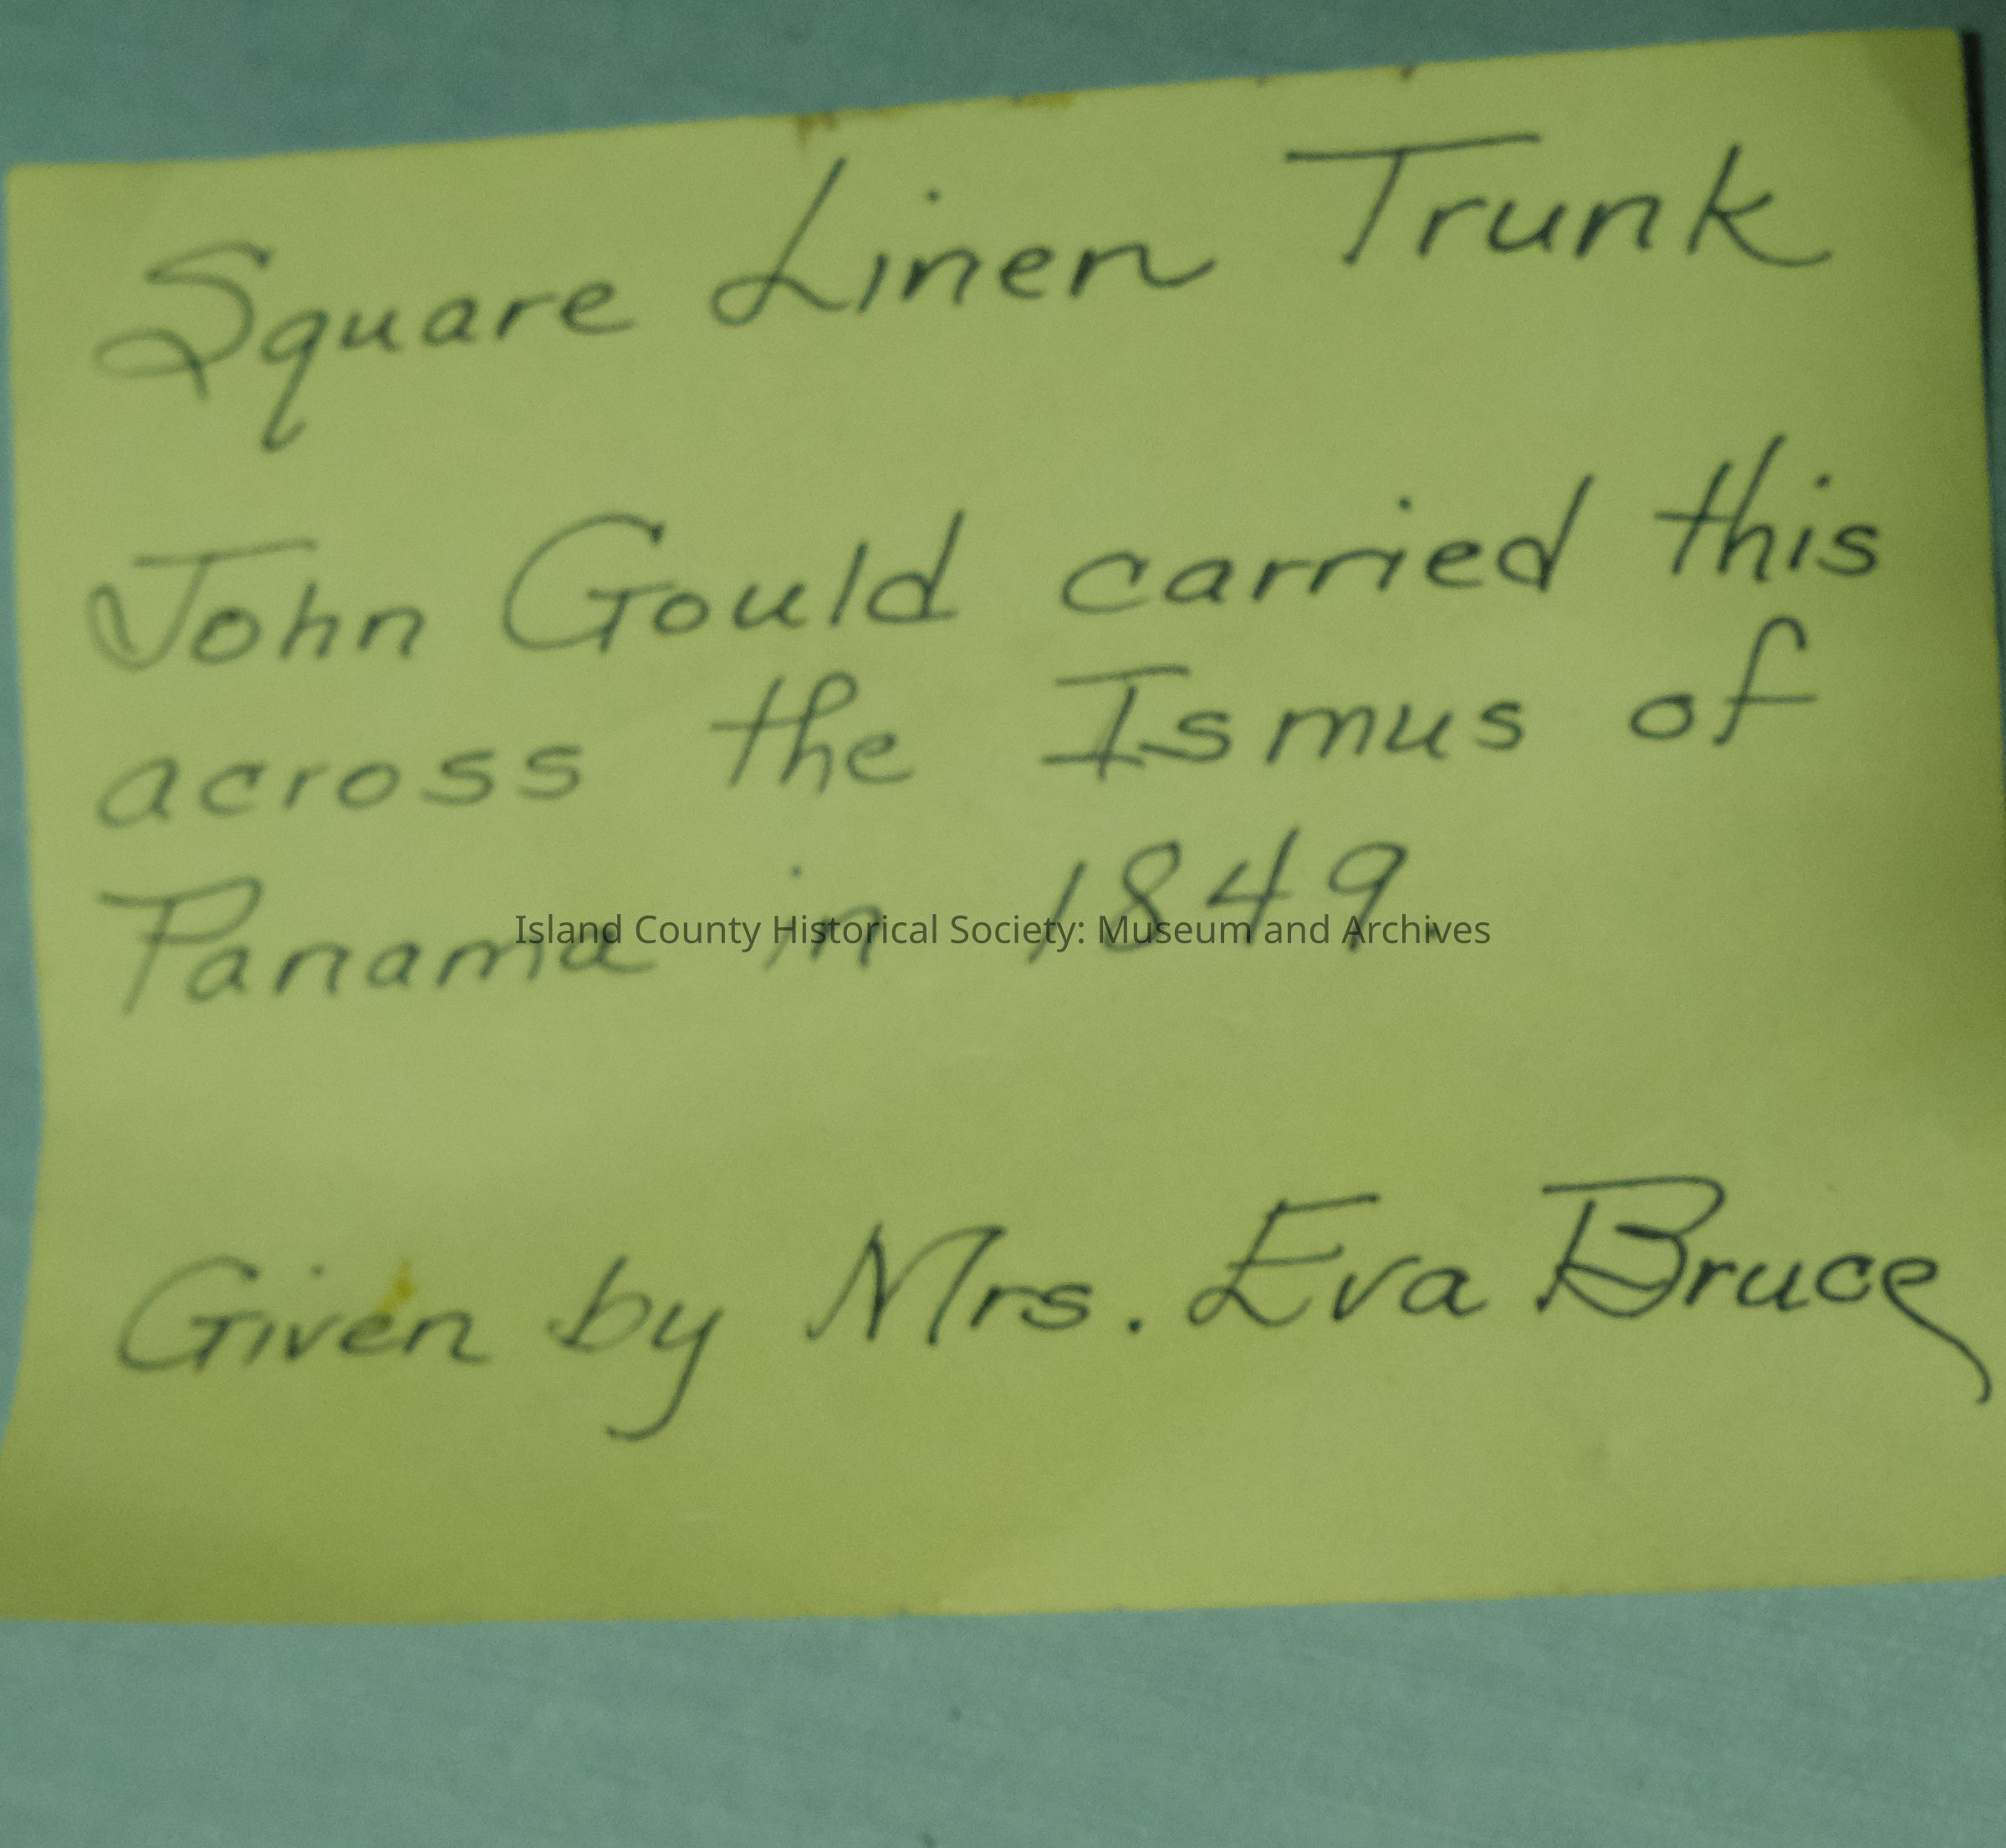 Square Linen Trunk
John Gould carried this
across the Ismus of
Panama in 1849
Island County Historical Society: Museum and Archives
Given by Mrs. Eva Bruce